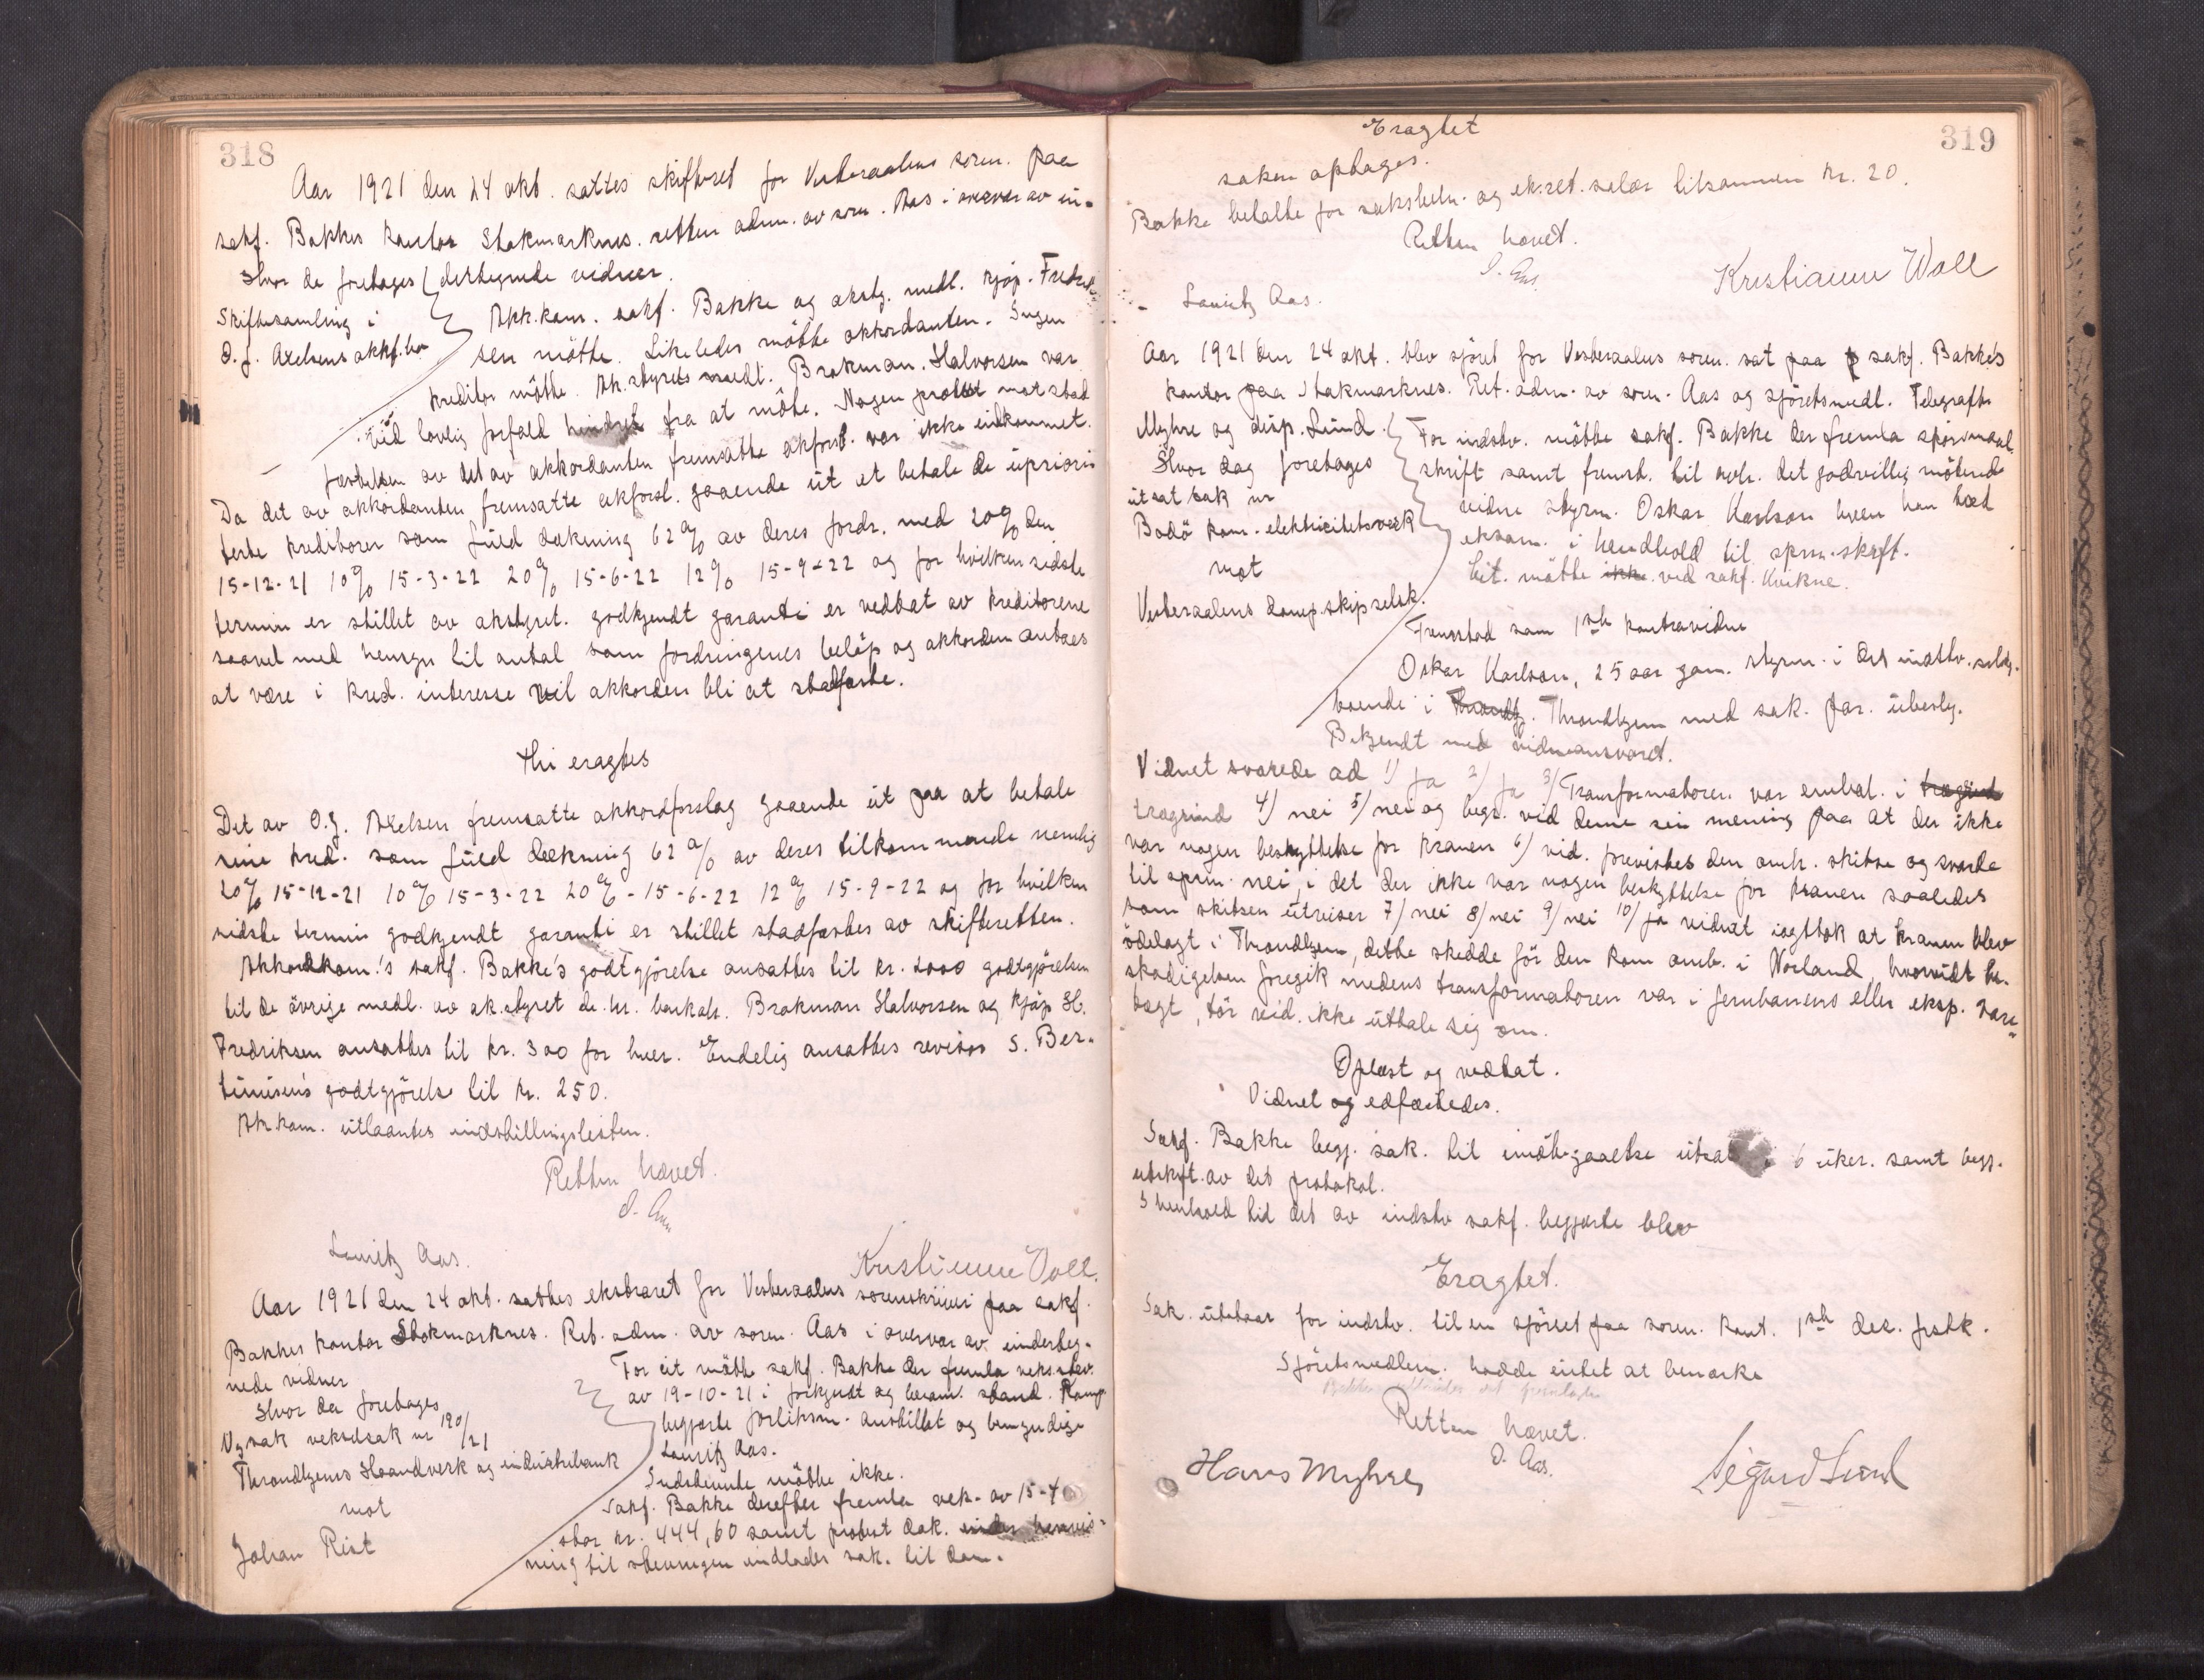 318
Aar 1921 den 24 okt. sattes skifteret for Vesteraalens soren. paa
sakf. Bakkes kontor Stokmarknes. retten adm. av soren. Aas i overvær av un-
Hvor da foretages dertegnede vidner.
Skiftesamling i
O. J. Axelsens akkf.bo
Akk.kom. sakf. Bakke og akstyr. medl. kjøp. Fredrik-
sen mötte. Likeledes mötte akkordanten. Ingen
kreditor mötte. Ak.styrets medl. Brokman. Halvorsen var
ved lovlig forfald hindret fra at möte. Nogen protest mot stad
fæstelsen av det av akkordanten fremsatte akforsl. var ikke indkommet.
Da det av akkordanten fremsatte akforsl. gaaende ut at betale de upriori-
terte kreditorer som fuld dækning 62 % av deres fordr. med 20 % den
15-12-21 10 % 15-3-22 20 % 15-6-22 12 % 15-9-22 og for hvilken sidste
termin er stillet av akstyret. godkjendt garanti er vedtat av kreditorerne
saavel med hensyn til antal som fordringenes belöp og akkorden antaes
at være i kred. interesse vil akkorden bli at stadfæste.
thi eragtes
Det av O. J. Axelsen fremsatte akkordforslag gaaende ut paa at betale
sine kred. som fuld dækning 62 % av deres tilkommende nemlig
20 % 15-12-21 10 % 15-3-22 20 % - 15-6-22 12 % 15-9-22 og for hvilken
sidste termin godkjendt garanti er stillet stadfæstes av skifteretten.
Akkordkom.'s sakf. Bakke's godtgjörelse ansattes til kr. 2000 godtgjörelsen
til de övrige medl. av ak.styret de hr. bankass. Brokman Halvorsen og kjöp H.
Fredriksen ansattes til kr. 300 for hver. Endelig ansattes revisor S. Ber-
tinusens godtgjörelse til kr. 250.
Ak.kom. utlaantes indstillingslisten.
Retten hævet.
O. Aas
Lauritz Aas.
Kristianne Voll.
Aar 1921 den 24 okt. sattes ekstraret for Vesteraalens sorenskriveri paa sakf.
Bakkes kontor Stokmarknes. Ret. adm. av soren. Aas i overvær av underteg-
nede vidner
Hvor da foretages
Ny sak vekselsak nr 190/21
Throndhjems Haandverk og industribank
mot
Johan Rist
For cit mötte sakf. Bakke der fremla veks.stev.
av 19-10-21 i forkyndt og beram. stand. Kamp
begjærte forliksm. anstillet og bemyndige
Lauritz Aas.
Indstevnte mötte ikke.
Sakf. Bakke derefter fremla vek. av 15-4
stor kr. 444,60 samt protest dok. under henvis-
ning til stevningen indlades sak. til dom.
319
Eragtet
saken optages.
Bakke betalte for saksbeh. og ek.ret. salær tilsammen kr. 20.
Retten hævet.
O. Aas.
Kristianne Woll
Lauritz Aas.
Aar 1921 den 24 okt. blev sjöret for Vesteraalens soren. sat paa sakf. Bakkes
kontor paa Stokmarknes. Ret. adm. av soren. Aas og sjöretsmedl. Telegrafb.
Myhre og disp. Lund.
Hvor dag foretages
utsat sak nr
Bodö kom. elektricitetsverk
mot
Vesteraalens damp.skipselsk.
For indstv. mötte sakf. Bakke der fremla spörsmaal
skrift samt fremst. til avh. det godvillig mötende
vidne styrm. Oskar Karlson hven han lod
eksam. i henhold til sprm.skrft.
Cit. mötte ikke ved sakf. Kvikne.
Fremstod som 1ste kontravidne
Oskar Karlson, 25 aar gam. styrm. i det indstv. selsk.
boende i Throndhj. Throndhjem med sak. par. ubesly.
Bekjendt med vidneansvaret.
Vidnet svarede ad 1/ ja 2/ ja 3/ Transformatoren var embal. i trægrind
trægrind 4/ nei 5/ nei og begr. vid denne sin mening paa at der ikke
var nogen beskyttelse for kranen 6/ vid. forevistes den omh. skitse og svarte
til sprm. nei, i det der ikke var nogen beskyttelse for kranen saaledes
som skitsen utviser 7/ nei 8/ nei 9/ nei 10/ ja vidnet iagttok at kranen blev
ödelagt i Throndhjem, dette skedde för den kom omb. i Norland, hvorvidt be-
skadigelsen foregik medens transformatoren var i jernbanens eller eksp. vare-
tægt, tör vid. ikke uttale sig om.
Oplæst og vedtat.
Vidnet og edfæstedes.
Sakf. Bakke begj. sak. til imötegaaelse utsat i 6 uker. samt begj.
utskrft. av det protokol.
I henhold til det av indstv sakf. begjærte blev
Eragtet.
Sak. utstaar for indstv. til en sjöret paa soren. kont. 1ste des. frstk.
Sjöretsmedlem. hadde intet at bemærke
Retten hævet.
O. Aas.
Hans Myhre
Sigurd Lund